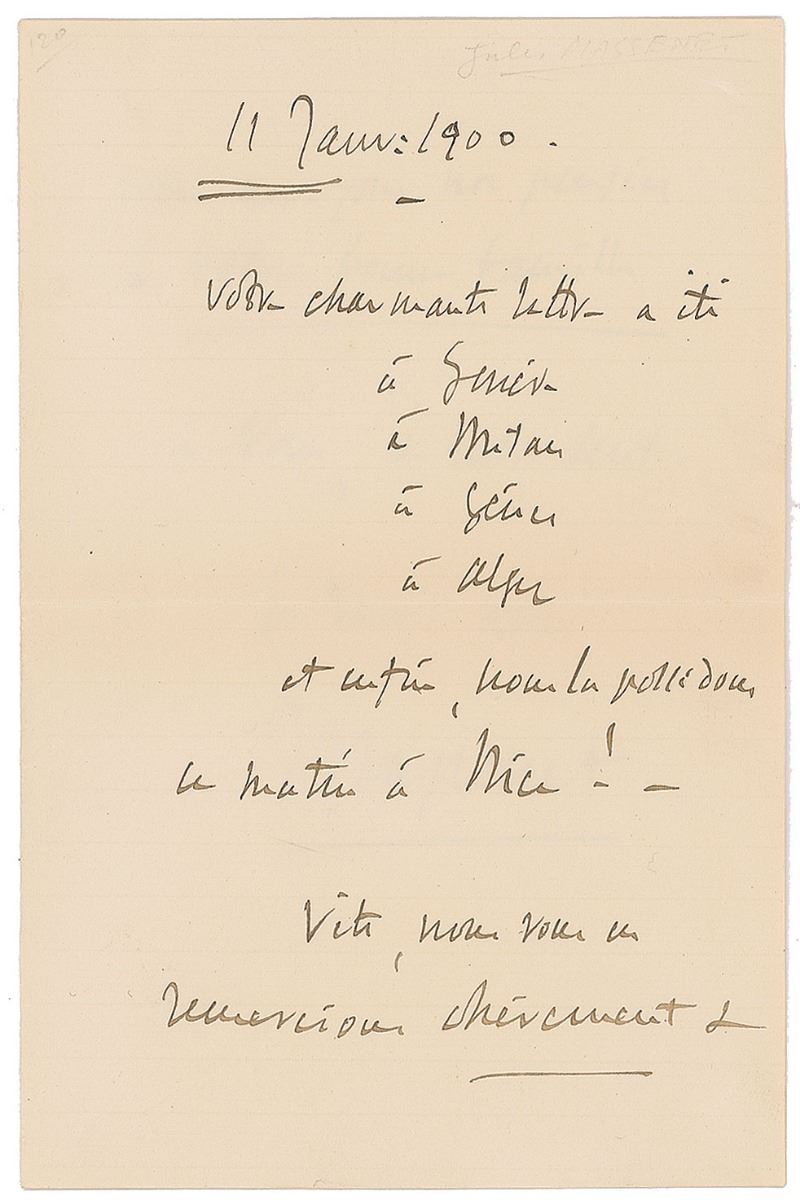 120
Jules MASSENET
11 Janv: 1900.
Votre charmante lettre a été
à Genève
à Milan
à Gênes
à Alger
et enfin, nous la possédons
ce matin à Nice! -
Vite, nous vous en
remercions chèrement &